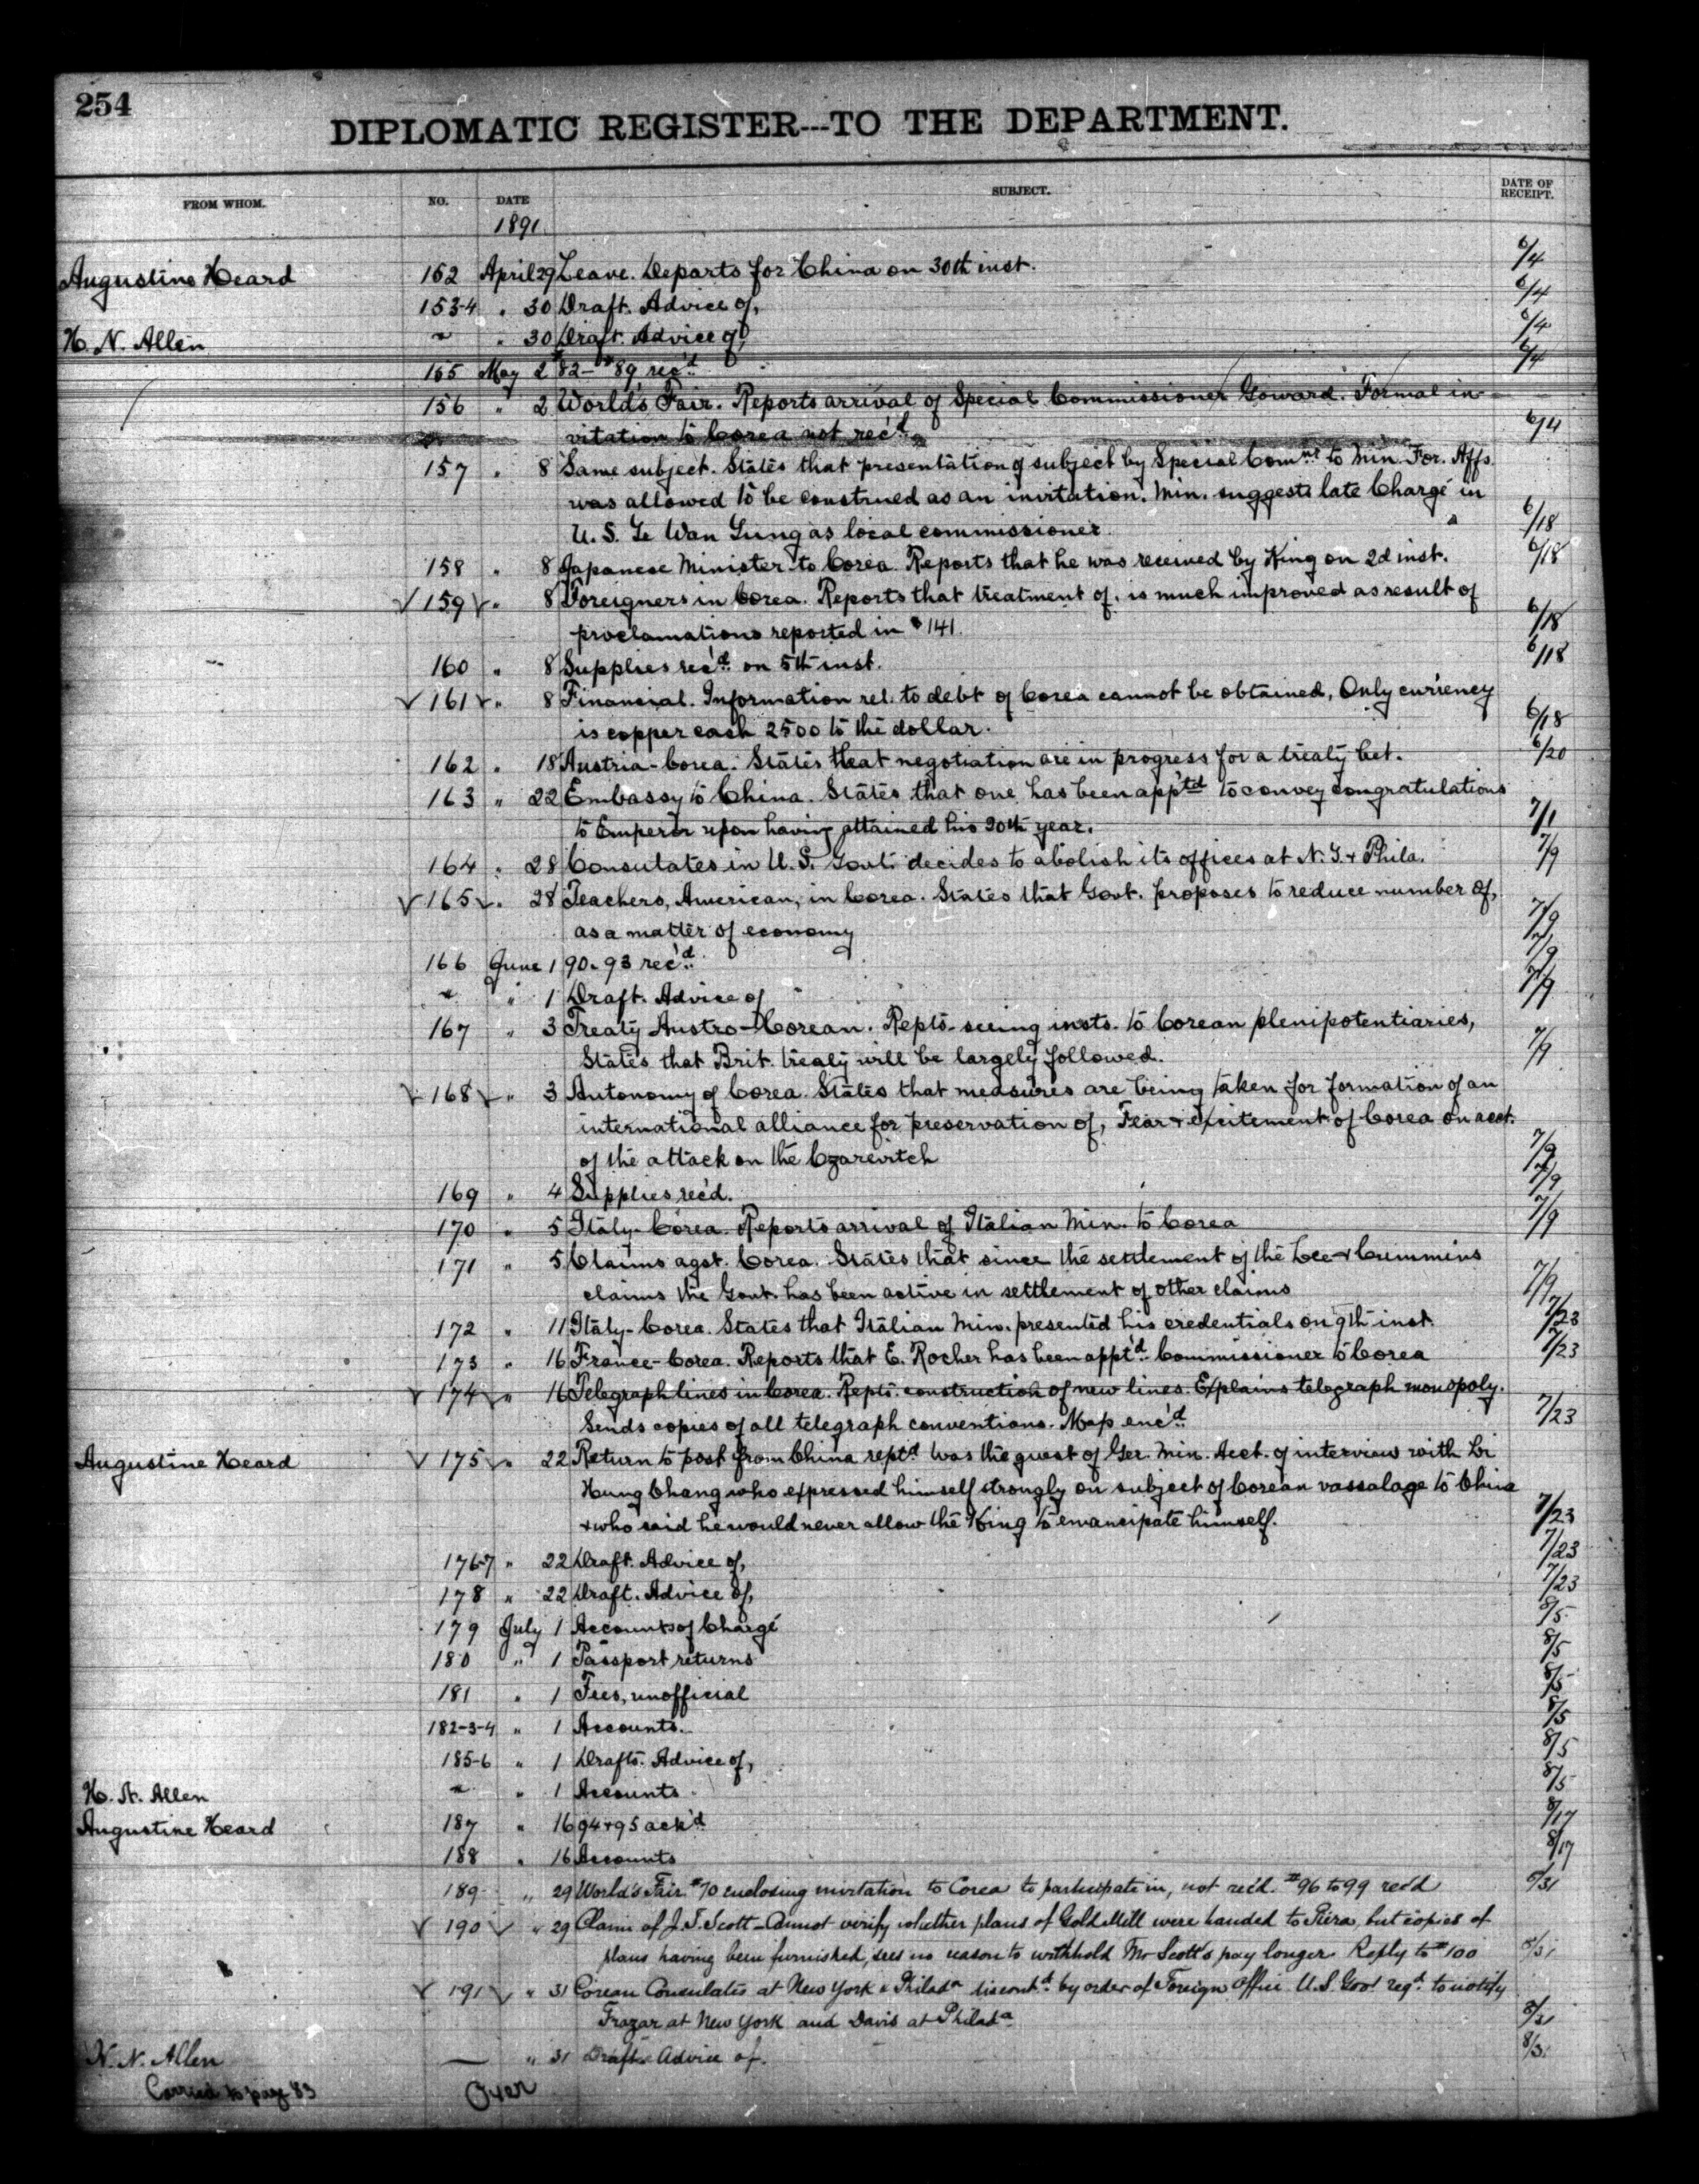 254
DIPLOMATIC REGISTER---TO THE DEPARTMENT.
FROM WHOM. NO. DATE SUBJECT. DATE OF RECEIPT.
1891.
Augustine Heard 152 April 29 Leave. Departs for China on 30th inst. 6/4
153-4 " 30 Draft. Advice of, 6/4
H. N. Allen ~ " 30 Draft. Advice of, 6/4
155 May 2 #82-#89 rec'd 6/4
156 " 2 World's Fair. Reports arrival of Special Commissioner Goward. Formal in-
vitation to Corea not rec'd. 6/4
157 " 8 Same subject. States that presentation of subject by Special Comnr to Min. For. Affs.
was allowed to be construed as an invitation. Min. suggests late Chargé in
U. S. Ye Wan Yung as local commissioner. 6/18
158 " 8 Japanese Minister to Corea. Reports that he was received by King on 2d inst. 6/18
√ 159 √ " 8 Foreigners in Corea. Reports that treatment of, is much improved as result of
proclamations reported in #141. 6/18
160 " 8 Supplies rec'd on 5th inst. 6/18
√ 161 √ " 8 Financial. Information rel. to debt of Corea cannot be obtained, Only currency
is copper cash 2500 to the dollar. 6/18
162 " 18 Austria-Corea. States that negotiation are in progress for a treaty bet. 6/20
163 " 22 Embassy to China. States that one has been app'td to convey congratulations
to Emperor upon having attained his 20th year. 7/1
164 " 28 Consulates in U. S. Govt. decides to abolish its offices at N. Y. & Phila. 7/9
√ 165 √ " 28 Teachers, American, in Corea. States that Govt. proposes to reduce number of,
as a matter of economy 7/9
166 June 1 90-93 rec'd 7/9
~ " 1 Draft. Advice of 7/9
167 " 3 Treaty Austro-Corean. Repts. seeing insts. to Corean plenipotentiaries,
States that Brit. treaty will be largely followed. 7/9
√ 168 √ " 3 Autonomy of Corea. States that measures are being taken for formation of an
international alliance for preservation of, Fear & excitement of Corea on acct.
of the attack on the Czarevitch 7/9
169 " 4 Supplies rec'd. 7/9
170 " 5 Italy-Corea. Reports arrival of Italian Min. to Corea 7/9
171 " 5 Claims agst. Corea. States that since the settlement of the Lee & Crimmins
claims the Govt. has been active in settlement of other claims 7/9
172 " 11 Italy-Corea. States that Italian Min. presented his credentials on 9th inst. 7/23
173 " 16 France-Corea. Reports that E. Rocher has been appt'd Commissioner to Corea 7/23
√ 174 √ " 16 Telegraph lines in Corea. Repts. construction of new lines. Explains telegraph monopoly.
Sends copies of all telegraph conventions. Map enc'd 7/23
Augustine Heard √ 175 √ " 22 Return to post from China rept'd Was the guest of Ger. Min. Acct. of interview with Li
Hung Chang who expressed himself strongly on subject of Corean vassalage to China
& who said he would never allow the King to emancipate himself. 7/23
176-7 " 22 Draft. Advice of, 7/23
178 " 22 Draft. Advice of, 7/23
179 July 1 Accounts of Chargé 8/5
180 " 1 Passport returns 8/5
181 " 1 Fees, unofficial 8/5
182-3-4 " 1 Accounts. 8/5
185-6 " 1 Drafts. Advice of, 8/5
H. N. Allen ~ " 1 Accounts. 8/5
Augustine Heard 187 " 16 94 & 95 ack'd 8/17
188 " 16 Accounts 8/17
189 " 29 World's Fair. #70 enclosing invitation to Corea to participate in, not rec'd. #96 to 99 rec'd 8/31
√ 190 √ " 29 Claim of J. G. Scott - Cannot verify whether plans of Gold Mill were handed to Piera, but copies of
plans having been furnished, sees no reason to withhold Mr Scott's pay longer. Reply to #100 8/31
√ 191 √ " 31 Corean Consulates at New York & Philada discont'd by order of Foreign Office. U. S. Govt reqd. to notify
Frazar at New York and Davis at Philada 8/31
H. N. Allen — " 31 Draft. Advice of. 8/3
Carried to page 83 Over